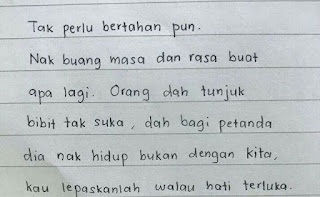 Tak perlu bertahan pun.
Nak buang masa dan rasa buat
apa lagi. Orang dah tunjuk
bibit tak suka, dah bagi petanda
dia nak hidup bukan dengan kita,
kau lepaskanlah walau hati terluka.